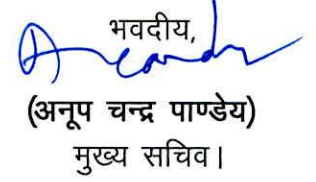 भवदीय,
(अनूप चन्द्र पाण्डेय)
मुख्य सचिव।